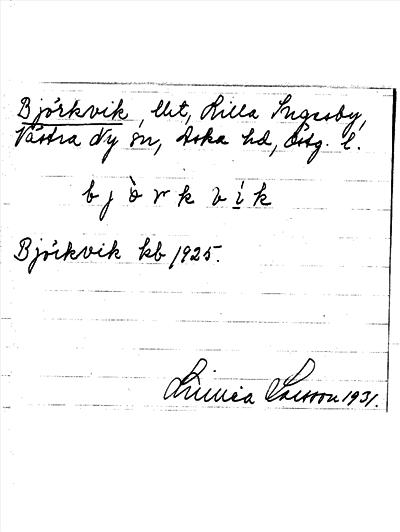 Björkvik, lht, Lilla Ingesby,
Västra Ny sn, Aska hd, Östg. l.
b j ò r k v i k
Björkvik kb 1925.
Linnea Larsson 1931.